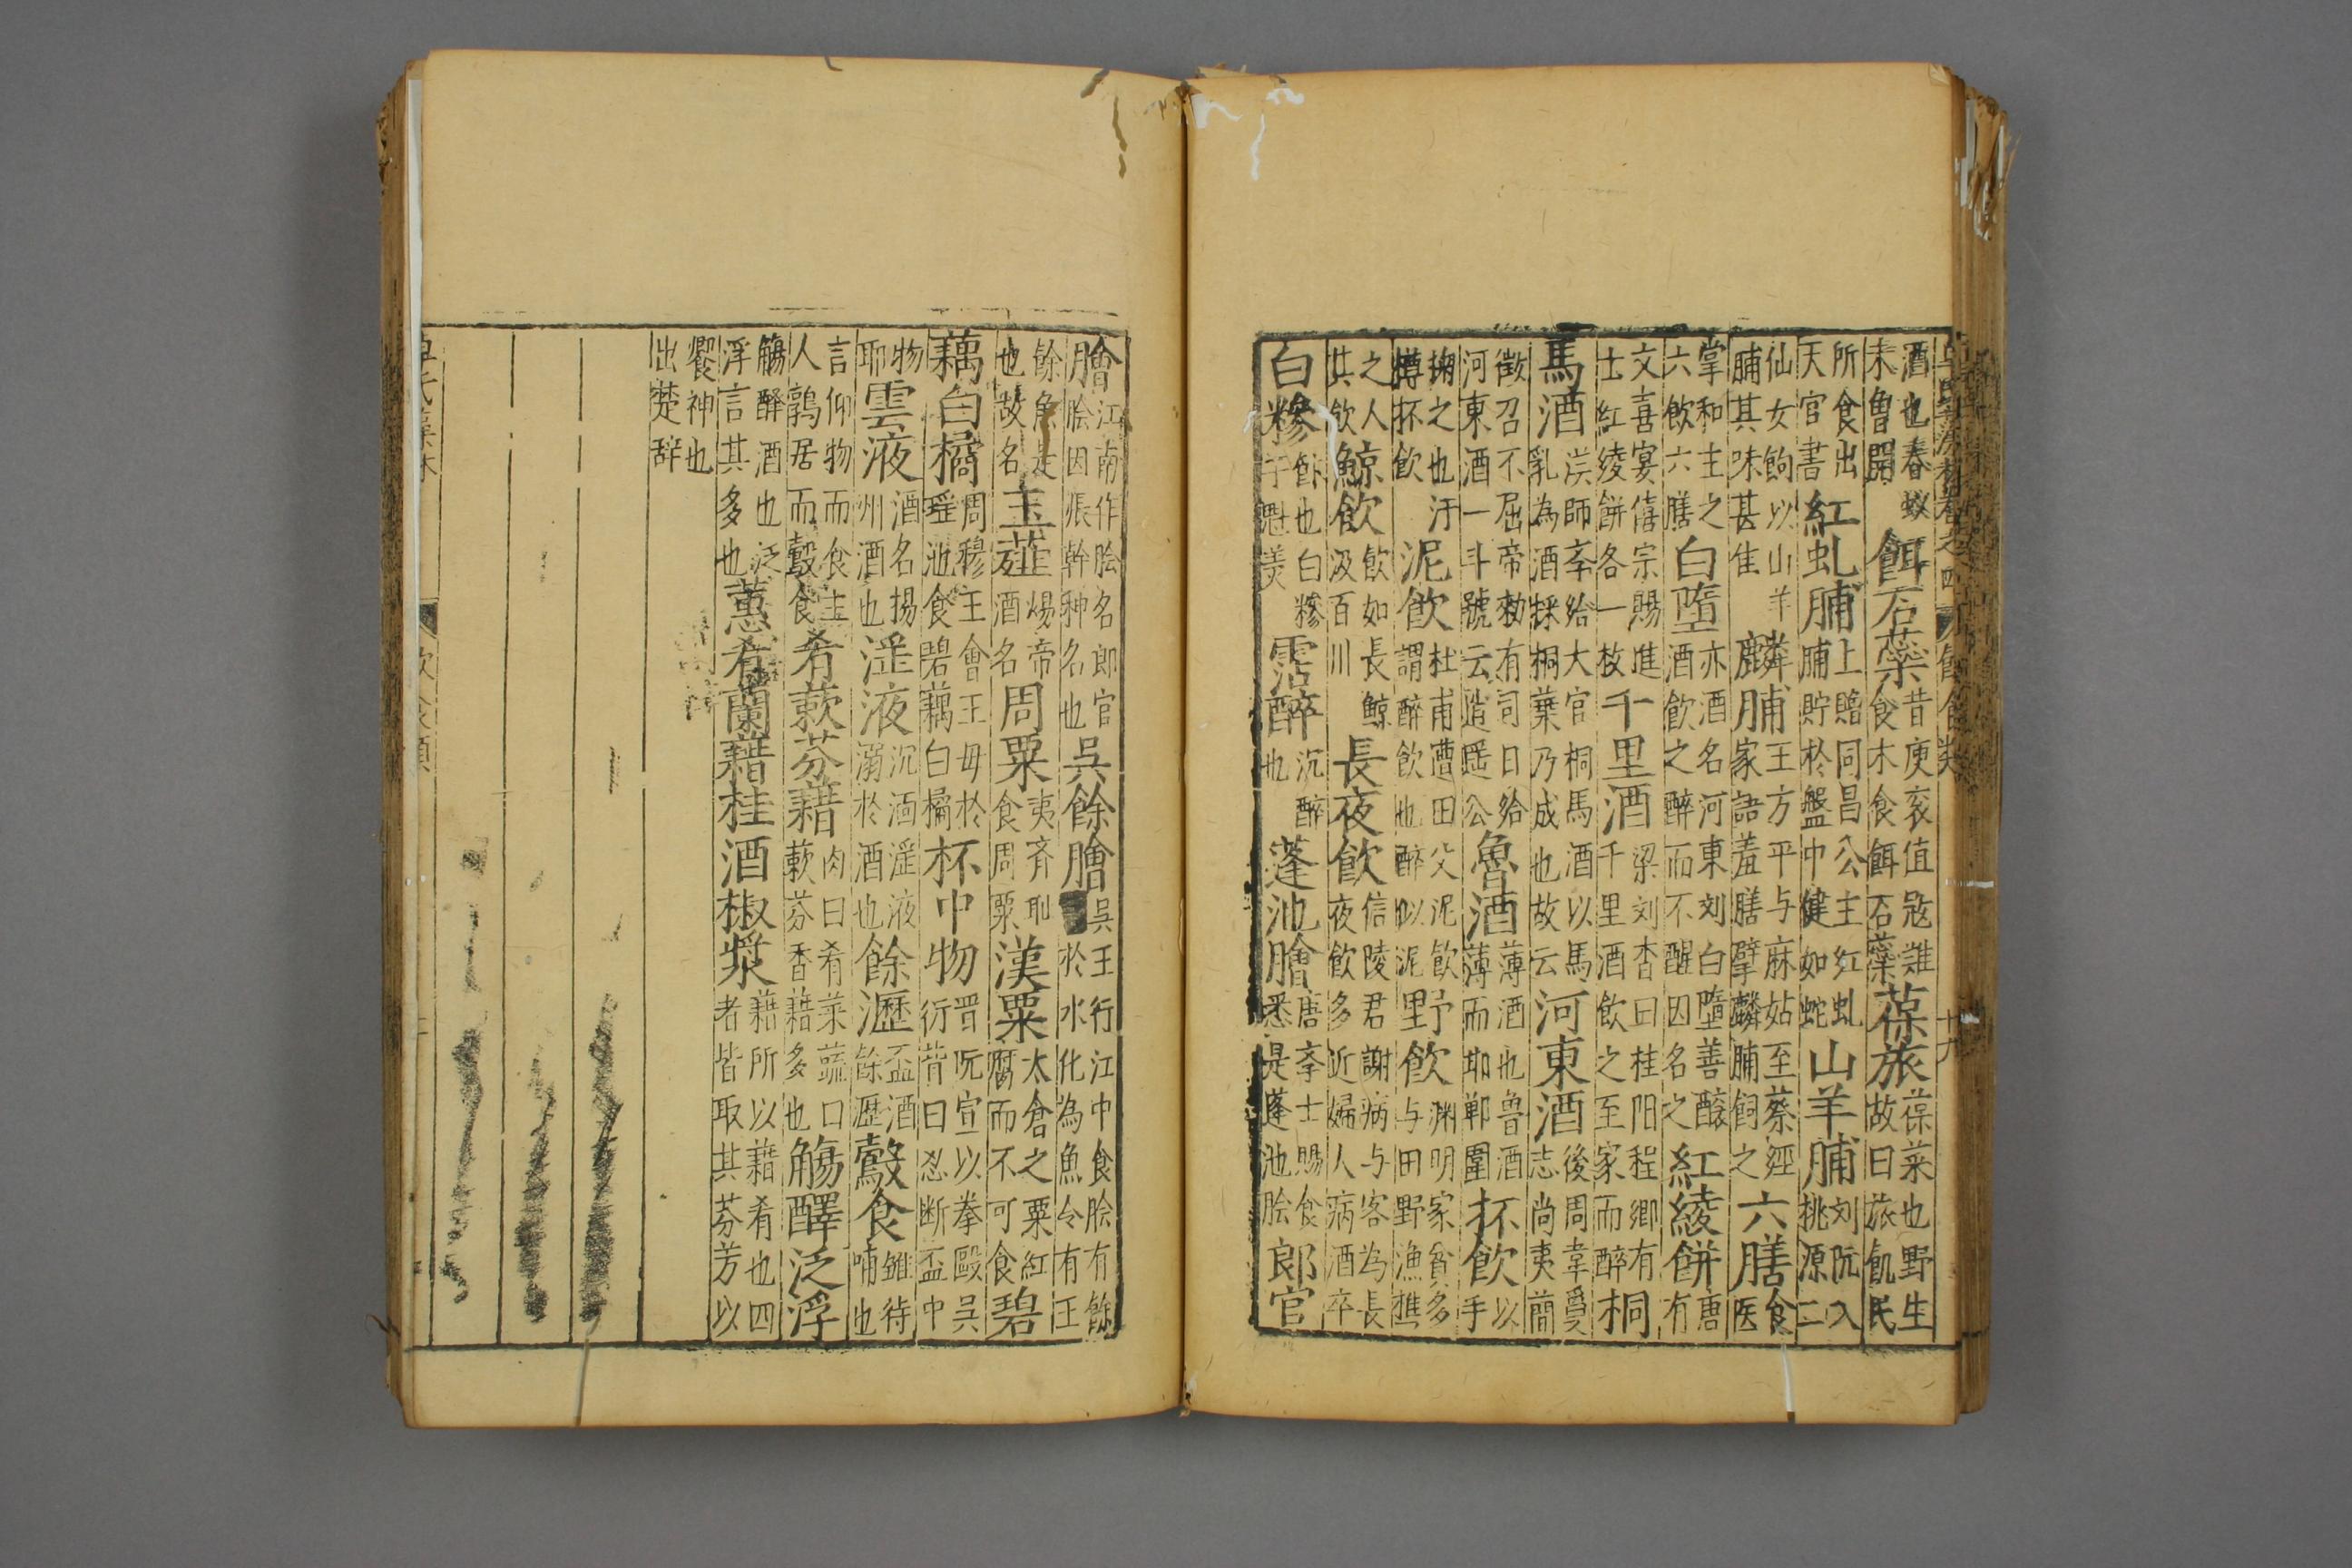 卓氏藻林卷之四 飲食类 十六
酒也春蟻未曾開餌石蘂昔庾衮值寇難食木食餌石蘂葆旅葆菜也野生故曰旅飢民
所食出天官書紅虬脯上賜同昌公主紅虬脯貯於盤中健如蛇山羊脯刘阮入桃源二
仙女餉以山羊脯其味甚佳麟脯王方平与麻姑至蔡經家語羞膳擘麟脯餉之六膳食医
掌和王之六飲六膳白墮亦酒名河東刘白墮善釀酒飲之醉而不醒因名之紅綾餅唐有
文喜宴僖宗賜進士紅綾餅各一枚千里酒梁刘杳曰桂阳程鄉有千里酒飲之至家而醉桐
馬酒師李給大官桐馬酒以馬乳為酒桐葉乃成也故云河東酒後周韋敻志尚夷簡
徵召不屈帝敕有司日給河東酒一斗號云逍遥公魯酒薄酒也鲁酒薄而邯鄲圍杯飲以手
掬之也汙樽杯飲泥飲杜甫遭田父泥飲謂醉飲也醉似泥野飲渊明家貧多与田野漁樵
之人其飲鯨飲飲如長鯨汲百川長夜飲信陵君謝病与客為長夜飲飲多近婦人病酒卒
白糝飰也白糝于魁羙霑醉沉醉也蓬池膾唐李士賜食悉是蓬池脍郎官
膾江南作脍名郎官脍因張幹种名也吳餘膾吳王行江中食脍有餘於水化為魚今有王
餘魚是也故名玉薤煬帝酒名周粟夷齐耻食周粟漢粟太倉之粟紅腐而不可食碧
藕白橘周穆王會王母於瑶池食碧藕白橘杯中物晋阮宣以拳毆吳衍背曰忍断盃中
物耶雲液酒名揚州酒也淫液沉湎淫液溺於酒也餘瀝盃酒餘瀝鷇食雏待哺也
言仰物而食圣人鹑居而鷇食肴蔌芬藉肉曰肴菜蔬曰蔌芬香藉多也觴醳泛浮
觴醳酒也泛浮言其多也蕙肴蘭藉桂酒椒漿藉所以藉肴也四者皆取其芬芳以
饗神也出楚辞
卓氏藻林 飲食類